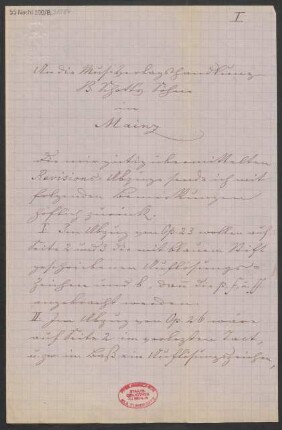 I
An die Musikverlagshandlung
B. Schotts Söhne
in
Mainz
Die mir gütig übermittelten
Revisions-Abzüge sende ich mit
folgenden Bemerkungen
höflich zurück.
I. Im Abzug von Op. 23 wollen auf
Seite 2 und die mit blauem Stift
geschriebenen Auflösungs-
zeichen und b, dann die p, f, ff
angebracht werden.
II. Im Abzug von Op. 26 wäre
auf Seite 2 im vorletzten Takt,
u. zw. im Baß ein Auflösungszeichen,